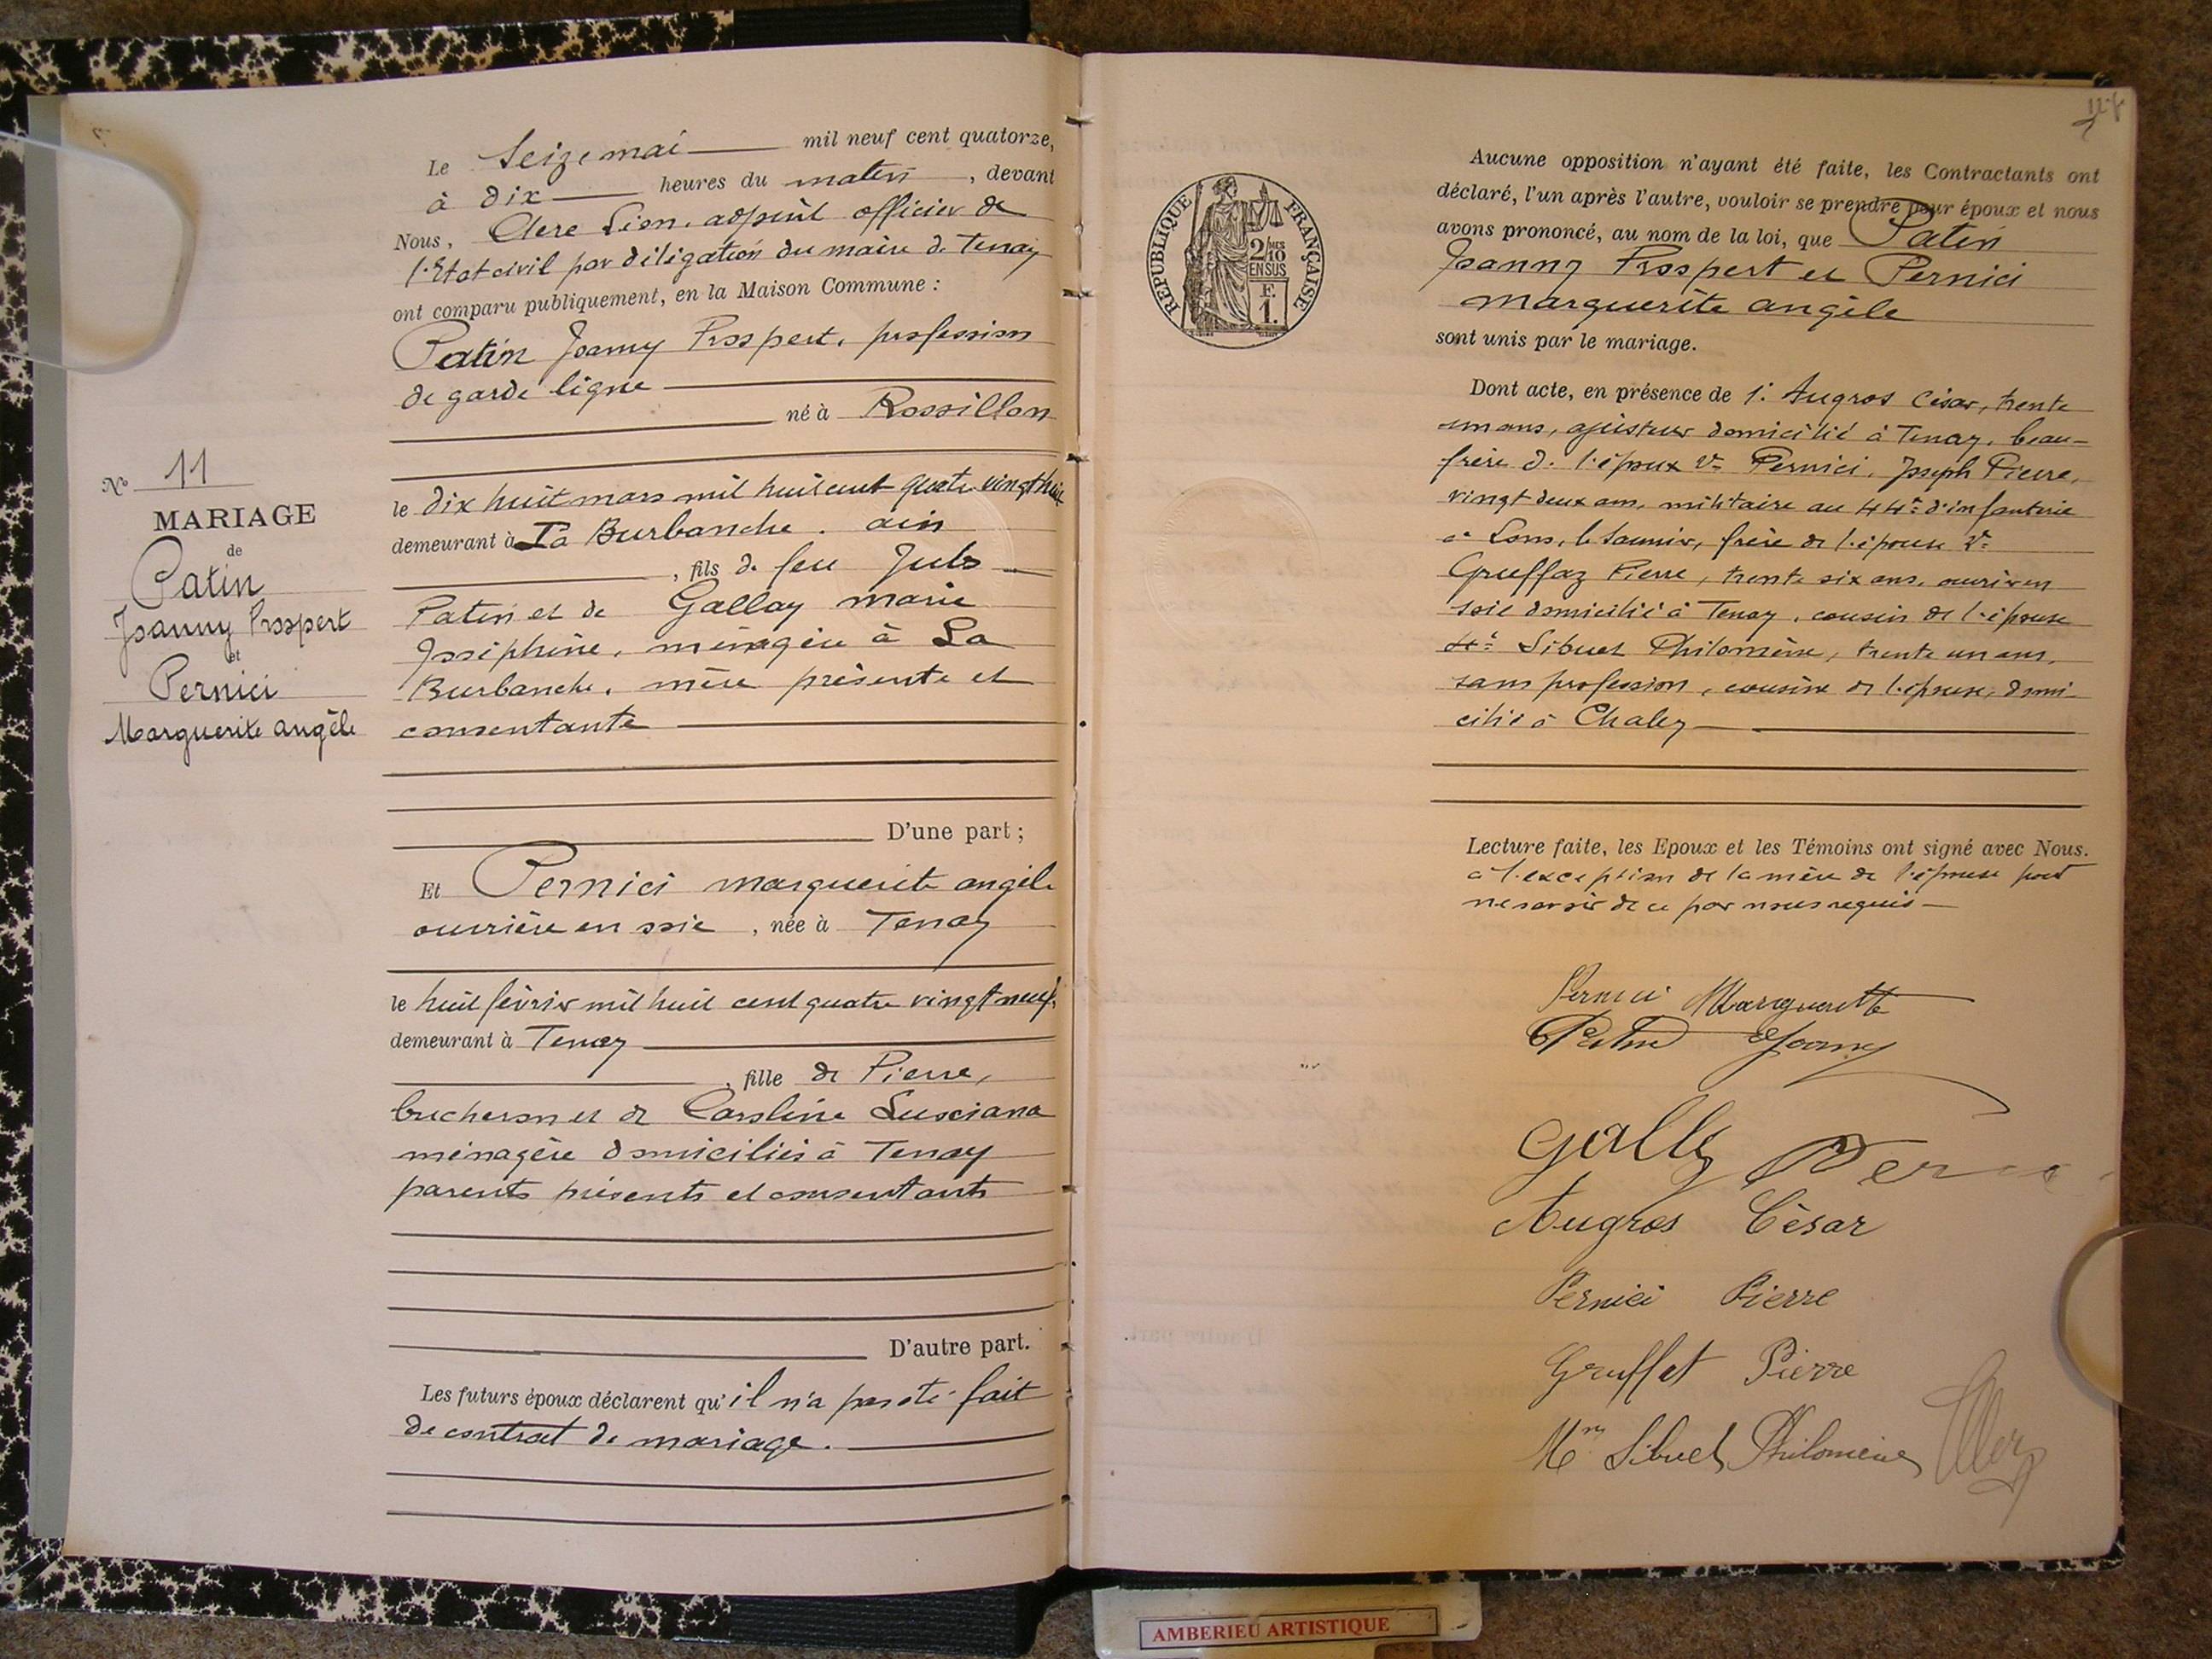 Le Seize mai mil neuf cent quatorze,
à dix heures du matin, devant
Nous, Clerc Léon, adjoint officier de
l'Etat civil par délégation du maire de Tenay
ont comparu publiquement, en la Maison Commune :
Patin Joanny Prospert, profession
de garde ligne
né à Rossillon
le dix huit mars mil huit cent quatre vingt huit
demeurant à La Burbanche. ain
, fils de feu Jules
Patin et de Gallay marie
Joséphine, ménagère à La
Burbanche, mère présente et
consentante
D'une part ;
Et Pernici marguerite angèle
ouvrière en soie, née à Tenay
le huit février mil huit cent quatre vingt neuf,
demeurant à Tenay
, fille de Pierre,
bucheron et de Caroline Lusciana
ménagère domiciliés à Tenay
parents présents et consentants
D'autre part.
Les futurs époux déclarent qu'il n'a pas été fait
de contrat de mariage.
No 11
MARIAGE
de
Patin
Joanny Prospert
et
Pernici
Marguerite angèle
REPUBLIQUE FRANÇAISE
2/10
EN SUS
F.
1.
Aucune opposition n'ayant été faite, les Contractants ont
déclaré, l'un après l'autre, vouloir se prendre pour époux et nous
avons prononcé, au nom de la loi, que Patin
Joanny Prospert et Pernici
marguerite angèle
sont unis par le mariage.
Dont acte, en présence de 1° Augros César, trente
un ans, ajusteur domicilié à Tenay, beau-
frère de l'époux 2° Pernici, Joseph Pierre,
vingt deux ans, militaire au 44e d'infanterie
à Lons, le Saunier, frère de l'épouse
Gruffaz Pierre, trente six ans, ouvrier en
soie domicilié à Tenay, cousin de l'épouse
4° Sibuet Philomène, trente un ans,
sans profession, cousine de l'épouse, domi-
cilié à Chaley
Lecture faite, les Epoux et les Témoins ont signé avec Nous.
à l'exception de la mère de l'épouse pour
ne savoir de ce par nous requis
Pernici Marguerite
Patin Joanny
Augros César
Pernici Pierre
Gruffat Pierre
Mme Sibuet Philomène
AMBERIEU ARTISTIQUE